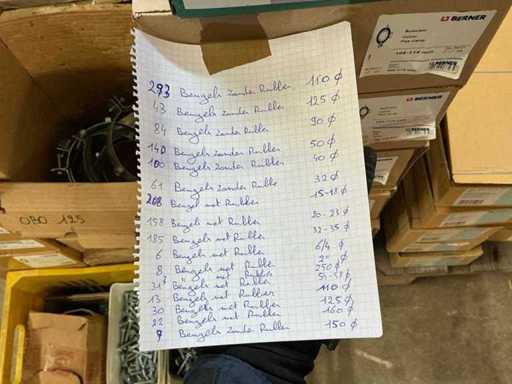 BERNER
BERNER
BERNER
293 Beugels zonder Rubber 110 ϕ
43 Beugels zonder Rubber 125 ϕ
84 Beugels zonder Rubber 90 ϕ
140 Beugels zonder Rubber 50 ϕ
100 Beugels zonder Rubber 40 ϕ
61 Beugels zonder Rubbe 32 ϕ
208 Beugel met Rubber 15-18 ϕ
158 Beugels met Rubber 20-23 ϕ
185 Beugels met Rubber 32-35 ϕ
6 Beugels met Rubber 6/4 ϕ
8 Beugels met Rubbe 2" ϕ
Rubber 250 ϕ
Beugels met Rubber
13 Beugels met Rubber 110 ϕ
30 Beugels met Rubber 125 ϕ
22 Beugels met Rubber 160 ϕ
9 Beugels zonder Rubber 150 ϕ
OBO 125